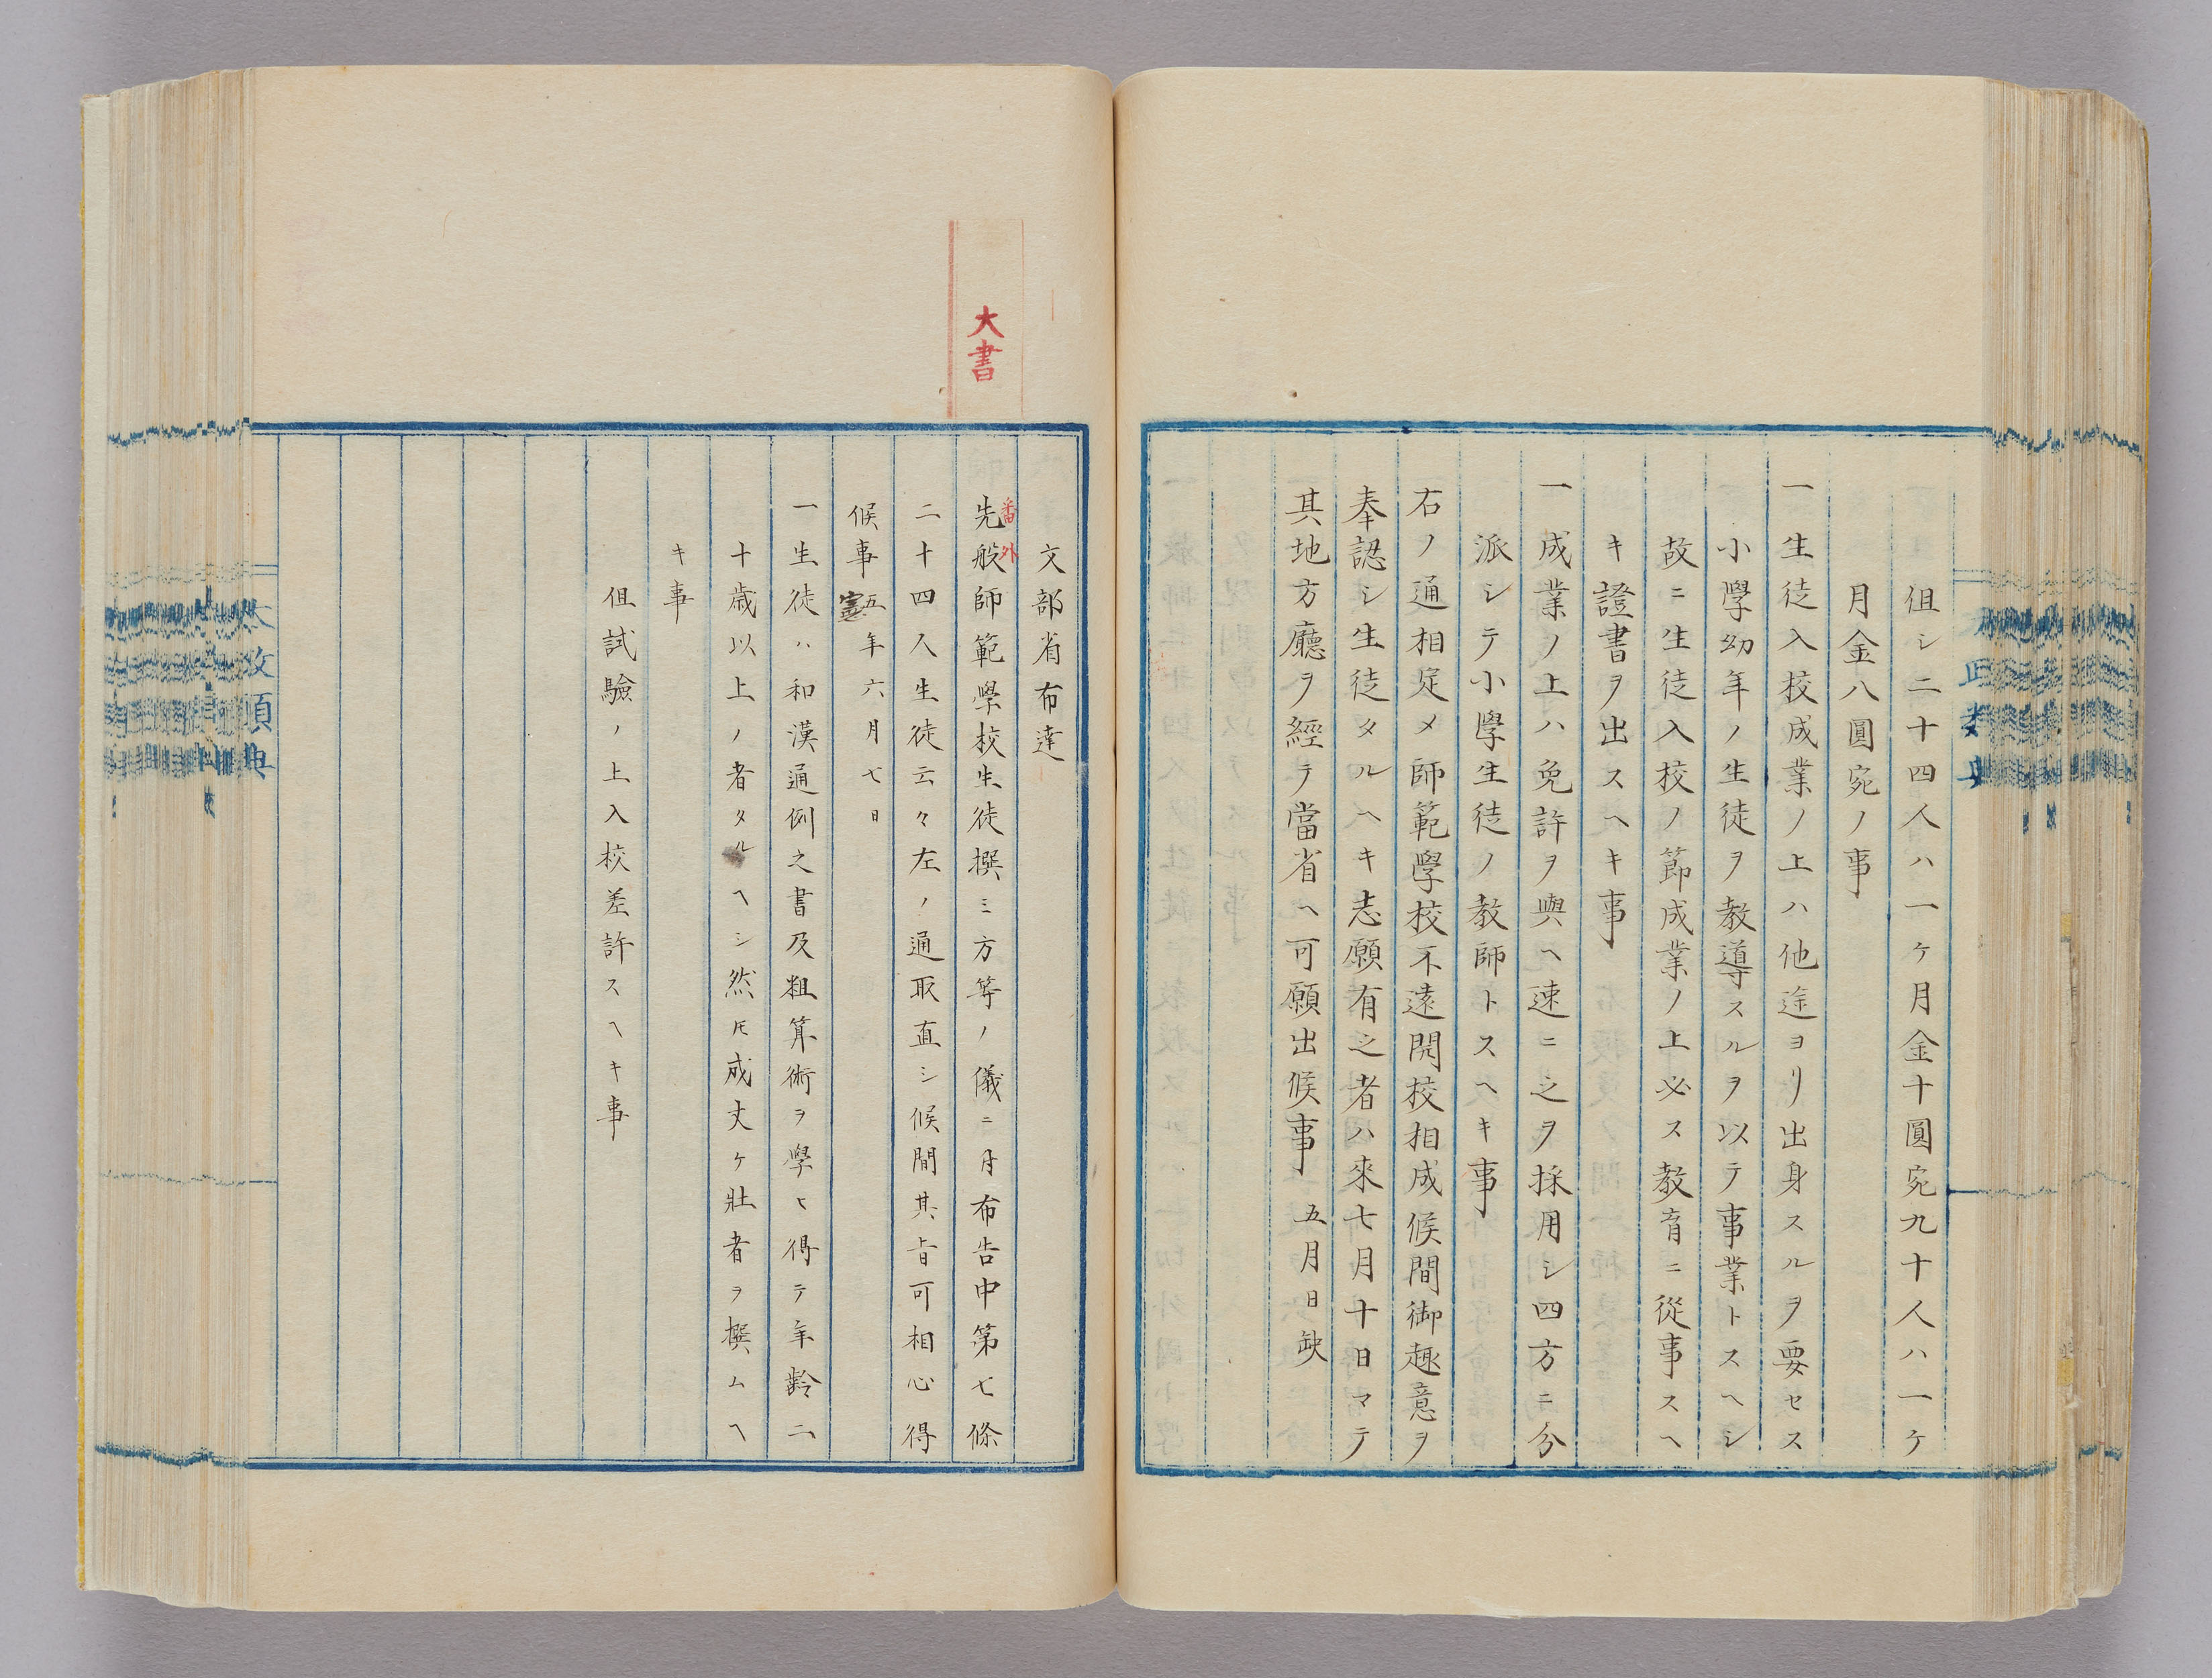 但シ二十四人ハ一ヶ月金十圓宛九十人ハ一ヶ
月金八圓宛ノ事
一生徒入校成業ノ上ハ他途ヨリ出身スルヲ要セス
小學幼年ノ生徒ヲ教導スルヲ以テ事業トスヘシ
故ニ生徒入校ノ節成業ノ上必ス教育ニ從事スヘ
キ證書ヲ出スヘキ事
一成業ノ上ハ免許ヲ與ヘ速ニ之ヲ採用シ四方ニ分
派シテ小學生徒ノ教師トスヘキ事
右ノ通相定メ師範學校不遠開校相成候間御趣意ヲ
奉認シ生徒タルヘキ志願有之者ハ來七月十日マテ
其地方廳ヲ經テ當省ヘ可願出候事 五月日缺
大書
文部省布達
番外
先般師範學校生徒撰ミ方等ノ儀ニ付布告中第七條
二十四人生徒云々左ノ通取直シ候間其旨可相心得
候事 五年六月七日
一生徒ハ和漢通例之書及粗算術ヲ學ヒ得テ年齡二
十歳以上ノ者タルヘシ然𪜈成丈ケ壯者ヲ撰ムヘ
キ事
但試驗ノ上入校差許スヘキ事
太政類典